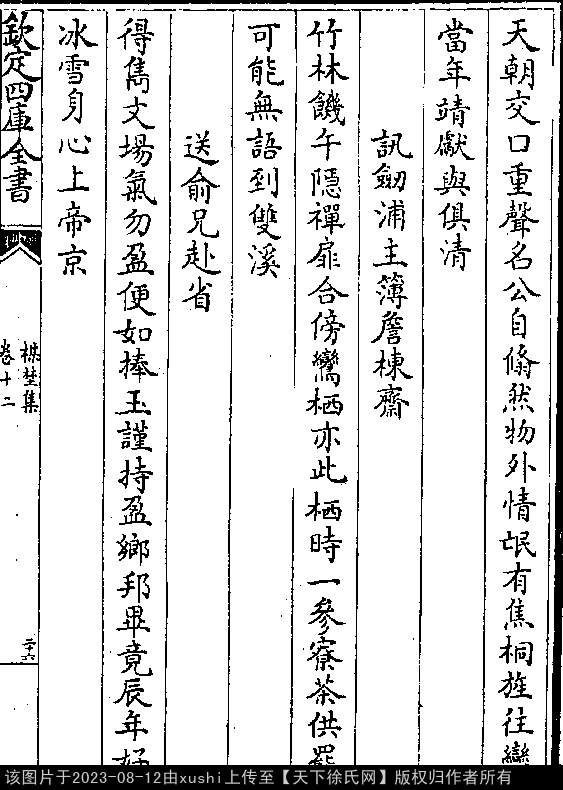 天朝交口重聲名公自翛然物外情氓有焦桐旌往鸞
當年靖獻與俱清
訊劒浦主簿詹棟齋
竹林饑午隱禪扉合傍鸞栖亦此栖時一參寮茶供罷
可能無語到雙溪
送俞兄赴省
得雋文場氣勿盈便如捧玉謹持盈鄉邦畢竟辰年好
冰雪身心上帝京
欽定四庫全書
楳埜集
卷十二
二十六
该图片于2023-08-12由xushi上传至【天下徐氏网】版权归作者所有